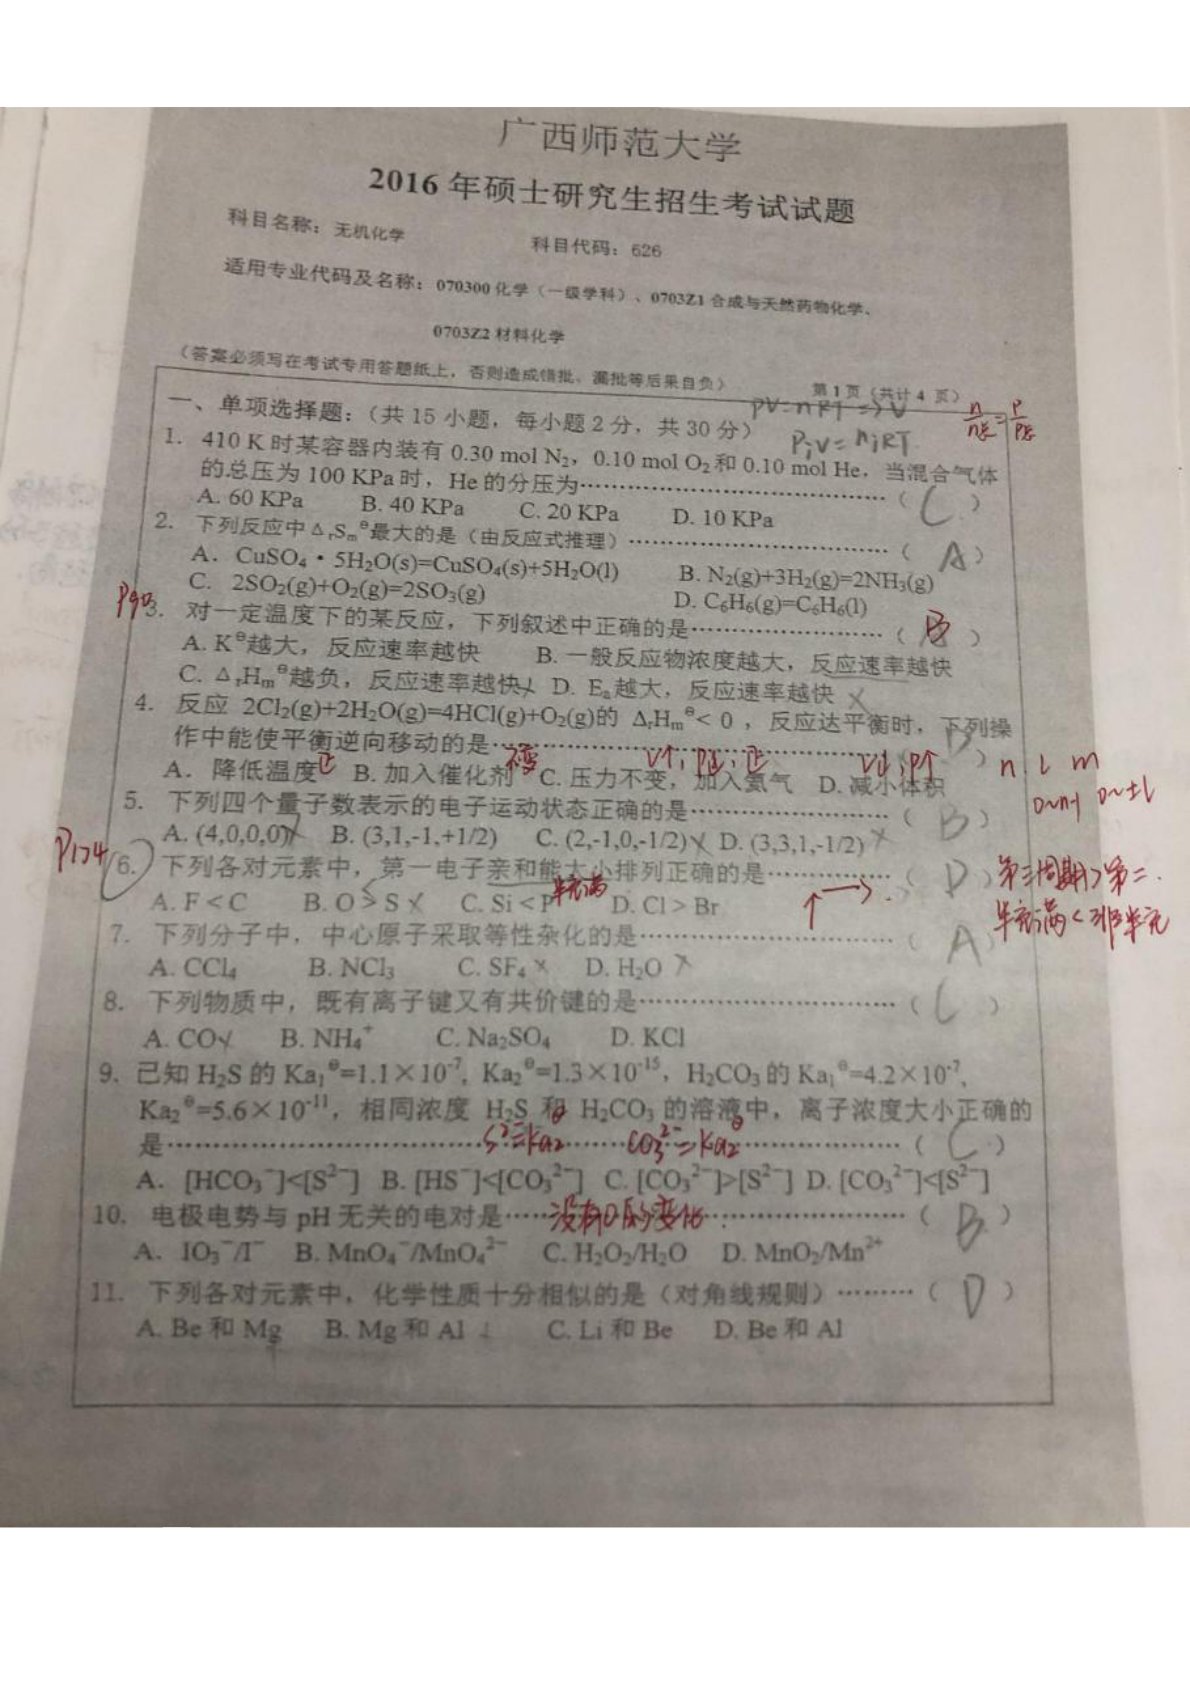 广西师范大学
2016 年硕士研究生招生考试试题
科目名称：无机化学 科目代码：626
适用专业代码及名称：070300 化学（一级学科）、0703Z1 合成与天然药物化学、
0703Z2 材料化学
（答案必须写在考试专用答题纸上，否则造成错批、漏批等后果自负） 第 1 页（共计 4 页）
PV=nRT => V n/n总=P/P总
一、单项选择题：（共 15 小题，每小题 2 分，共 30 分） PiV=niRT
1. 410 K 时某容器内装有 0.30 mol N₂，0.10 mol O₂ 和 0.10 mol He，当混合气体
的总压为 100 KPa 时，He 的分压为……………………………（ C ）
A. 60 KPa B. 40 KPa C. 20 KPa D. 10 KPa
2. 下列反应中 ΔrSm^θ 最大的是（由反应式推理）……………………………（ A ）
A. CuSO₄·5H₂O(s)=CuSO₄(s)+5H₂O(l) B. N₂(g)+3H₂(g)=2NH₃(g)
C. 2SO₂(g)+O₂(g)=2SO₃(g) D. C₆H₆(g)=C₆H₆(l)
3. 对一定温度下的某反应，下列叙述中正确的是……………………（ B ）
A. K^θ越大，反应速率越快 B. 一般反应物浓度越大，反应速率越快
C. ΔrHm^θ越负，反应速率越快 D. Eₐ越大，反应速率越快 ×
4. 反应 2Cl₂(g)+2H₂O(g)=4HCl(g)+O₂(g)的 ΔrHm^θ< 0 ，反应达平衡时，下列操
作中能使平衡逆向移动的是……………………………………（ ） n l m
正 不变 V↑，P↓，正 V↓，P↑
A. 降低温度 B. 加入催化剂 C. 压力不变，加入氦气 D. 减小体积
0~n-1 0~±l
5. 下列四个量子数表示的电子运动状态正确的是……………………（ B ）
A. (4,0,0,0)× B. (3,1,-1,+1/2) C. (2,-1,0,-1/2)× D. (3,3,1,-1/2)×
P174
6. 下列各对元素中，第一电子亲和能大小排列正确的是……………（ D ） 第三周期>第二.
A. F < C B. O > S × C. Si < P 半充满 D. Cl > Br 半充满<非半充
7. 下列分子中，中心原子采取等性杂化的是……………………………（ A ）
A. CCl₄ B. NCl₃ C. SF₄ × D. H₂O ×
8. 下列物质中，既有离子键又有共价键的是……………………………（ C ）
A. CO× B. NH₄⁺ C. Na₂SO₄ D. KCl
9. 已知 H₂S 的 Ka₁^θ=1.1×10⁻⁷, Ka₂^θ=1.3×10⁻¹⁵，H₂CO₃的 Ka₁^θ=4.2×10⁻⁷,
Ka₂^θ=5.6×10⁻¹¹，相同浓度 H₂S 和 H₂CO₃ 的溶液中，离子浓度大小正确的
是……………………S²⁻=Ka₂^θ……CO₃²⁻=Ka₂^θ……………（ C ）
A. [HCO₃⁻]<[S²⁻] B. [HS⁻]<[CO₃²⁻] C. [CO₃²⁻]>[S²⁻] D. [CO₃²⁻]<[S²⁻]
10. 电极电势与 pH 无关的电对是……没有O的变化……………………（ B ）
A. IO₃⁻/I⁻ B. MnO₄⁻/MnO₄²⁻ C. H₂O₂/H₂O D. MnO₂/Mn²⁺
11. 下列各对元素中，化学性质十分相似的是（对角线规则）………（ D ）
A. Be 和 Mg B. Mg 和 Al C. Li 和 Be D. Be 和 Al